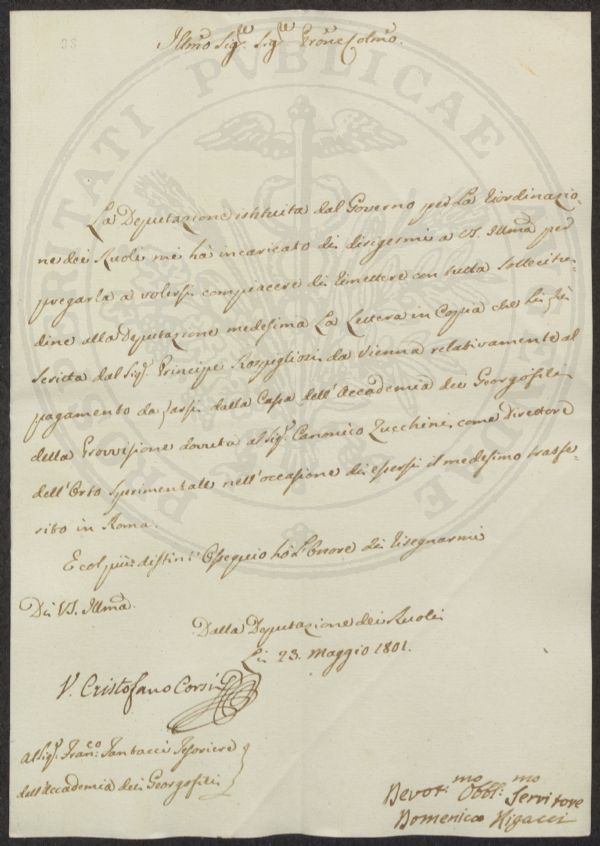 Illmo Sigre Sigre Prone Colmo.
La Deputazione istituita dal Governo per La riordinazio-
ne dei Ruoli mi hà incaricato di dirigermi a VS. Illma per
pregarla a volersi compiacere di rimettere con tutta sollecitu-
dine alla Deputazione medesima La Lettera in Copia che Li fù
scritta dal Sig. Principe Rospigliosi da Vienna relativamente al
pagamento da farsi dalla Cassa dell'Accademia dei Georgofili
della Provvisione dovuta al Sig. Canonico Zucchini come Direttore
dell'Orto Sperimentale nell'occasione di essersi il medesimo trasfe-
rito in Roma.
E col più distint.o Ossequio hò L'Onore di risegnarmi
Di VS. Illma.
Dalla Deputazione dei Ruoli
Li 23. Maggio 1801.
V. Cristofano Corsi
Al Sig. Franco. Tartacci Tesoriere
dell'Accademia dei Georgofili
Devot:mo Obbl:mo Servitore
Domenico
PROSPERITATI PVBLICAE AVGENDAE